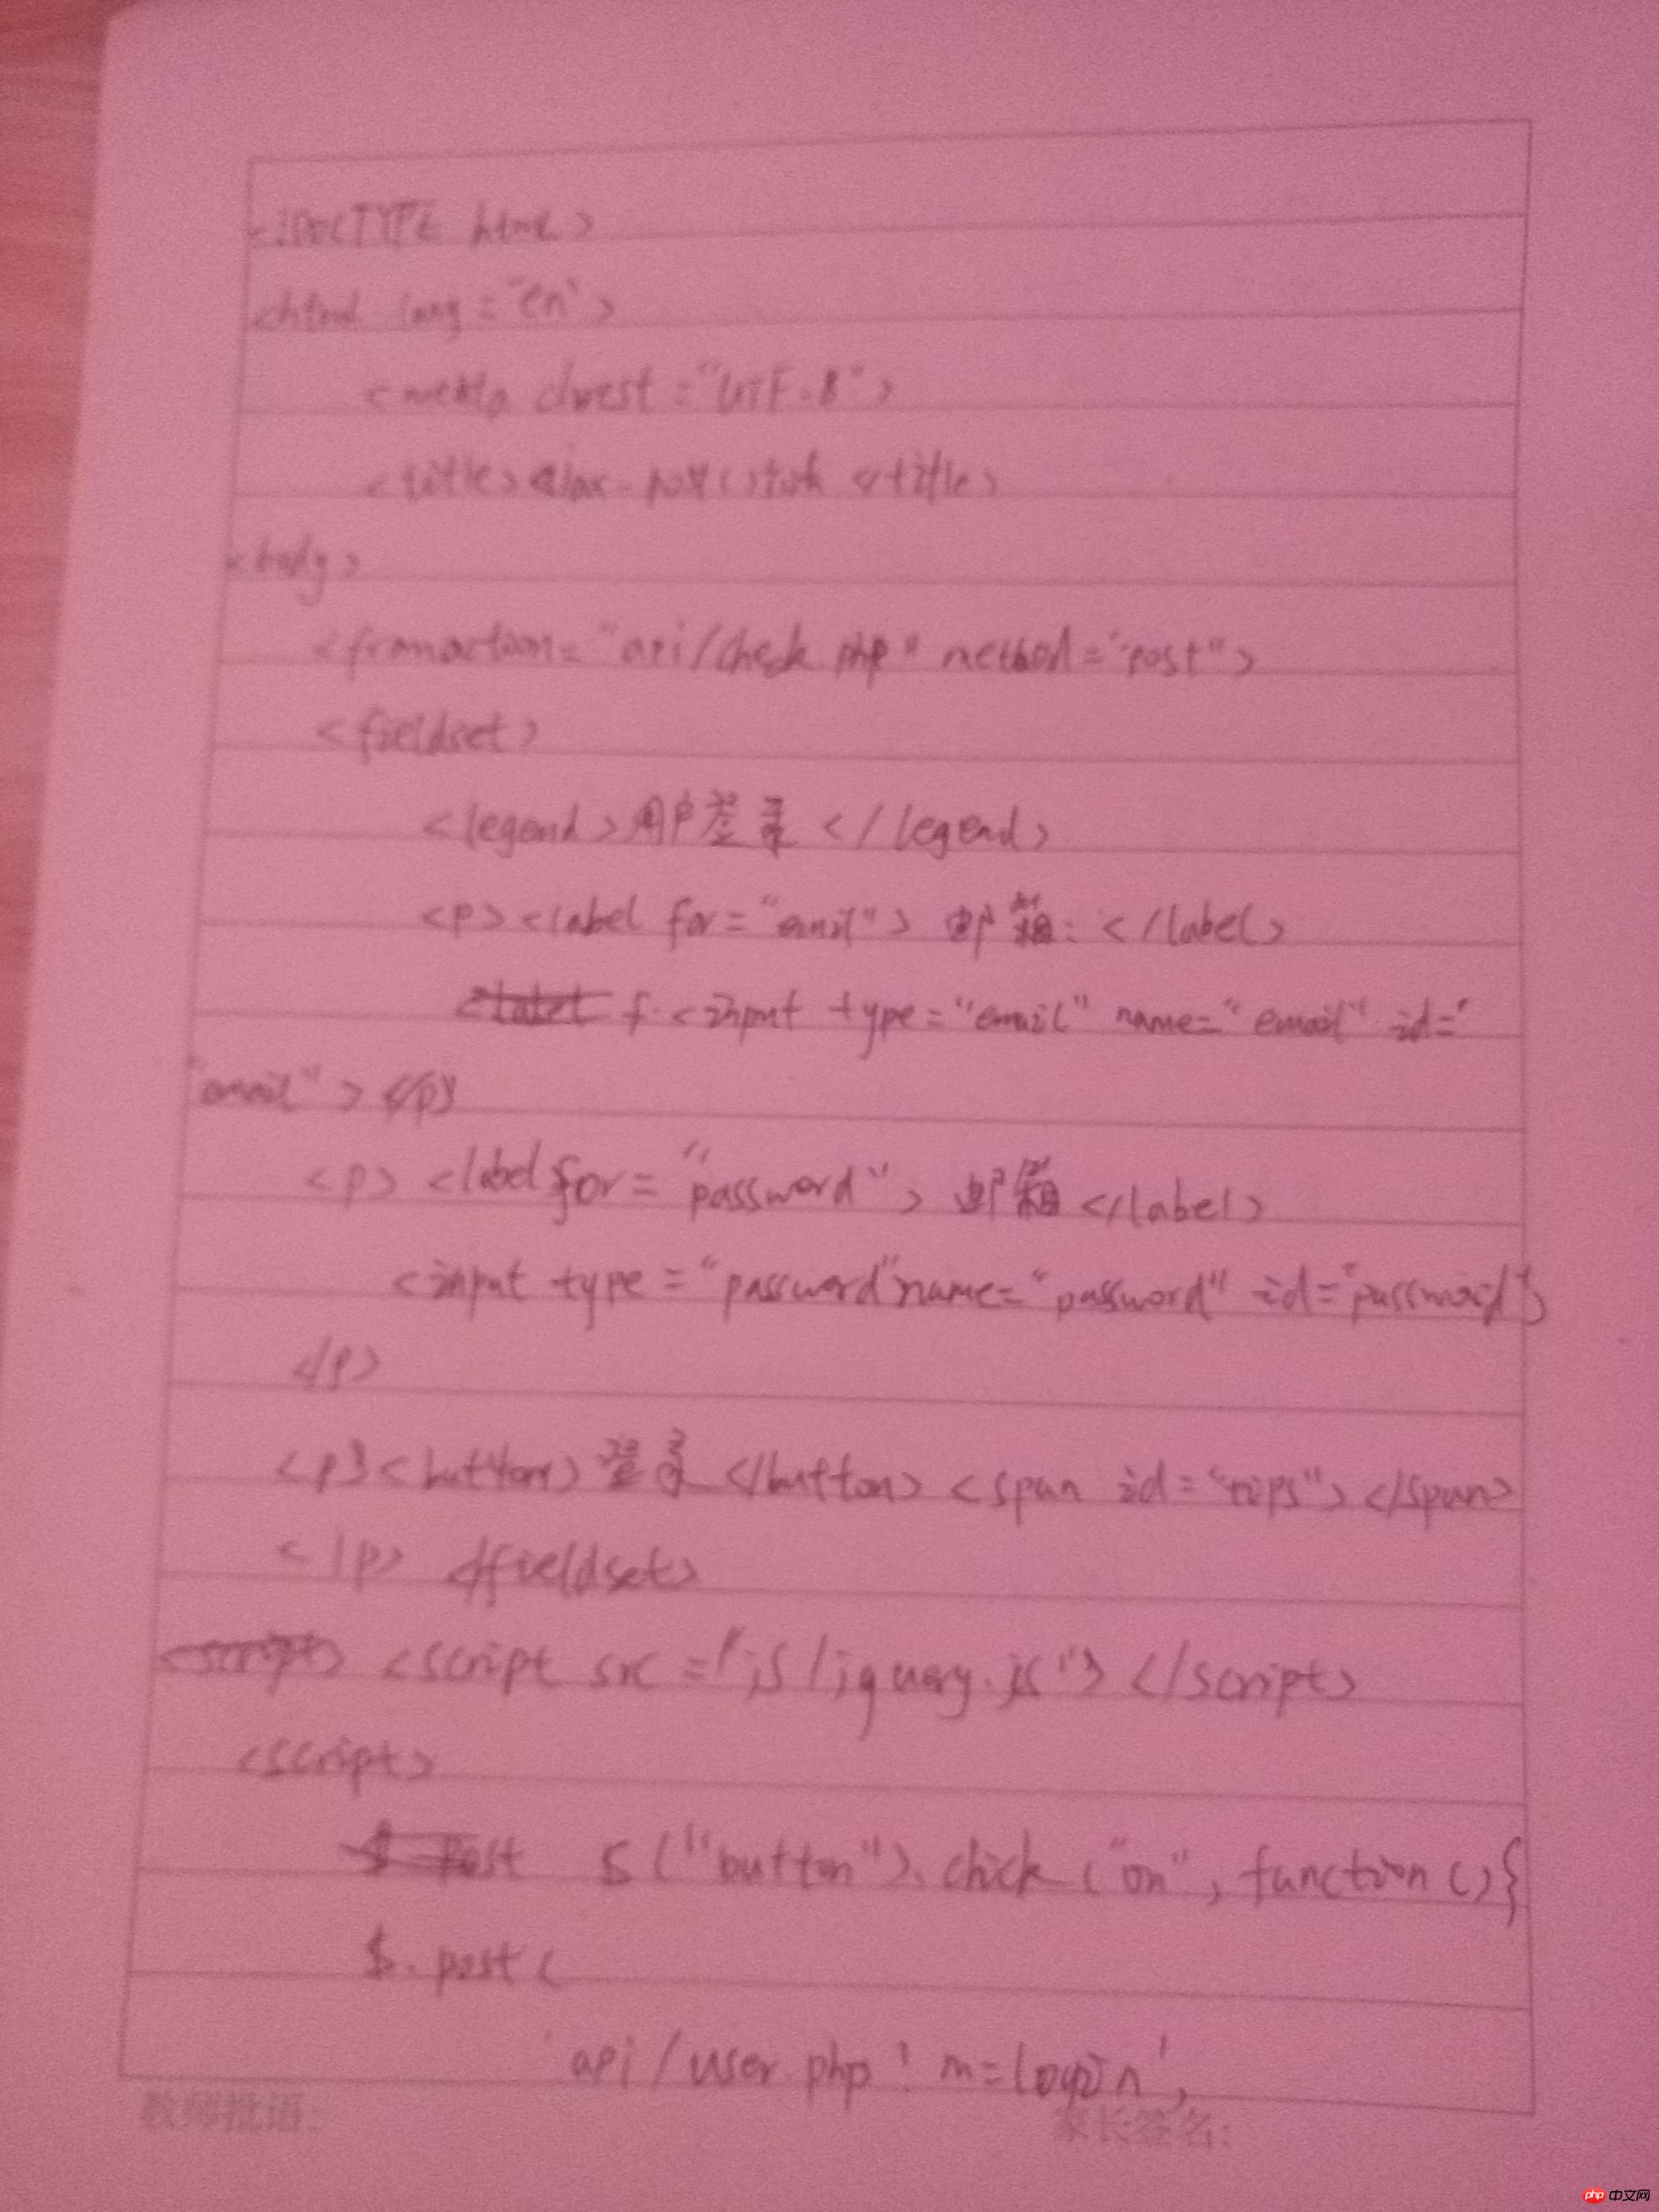 <!DOCTYPE html>
<html lang="en">
<meta charset="UTF-8">
<title> </title>
<body>
<fromaction="api/check php" method="post">
<fieldset>
<legend>用户登录</legend>
<p><label for="email"> 邮箱: </label>
<input type="email" name="email" id="
"email"></p>
<p><label for="password"> 邮箱 </label>
<input type="password" name="password" id="password">
</p>
<p><button>登录</button> <span id="tips"></span>
</p> </fieldset>
<script> <script src="js/jquery.js"></script>
<script>
$ post $("button").chick("on", function(){
$.post(
'api/user php? m=login',
教师批语:
家长签名:
php 中文网